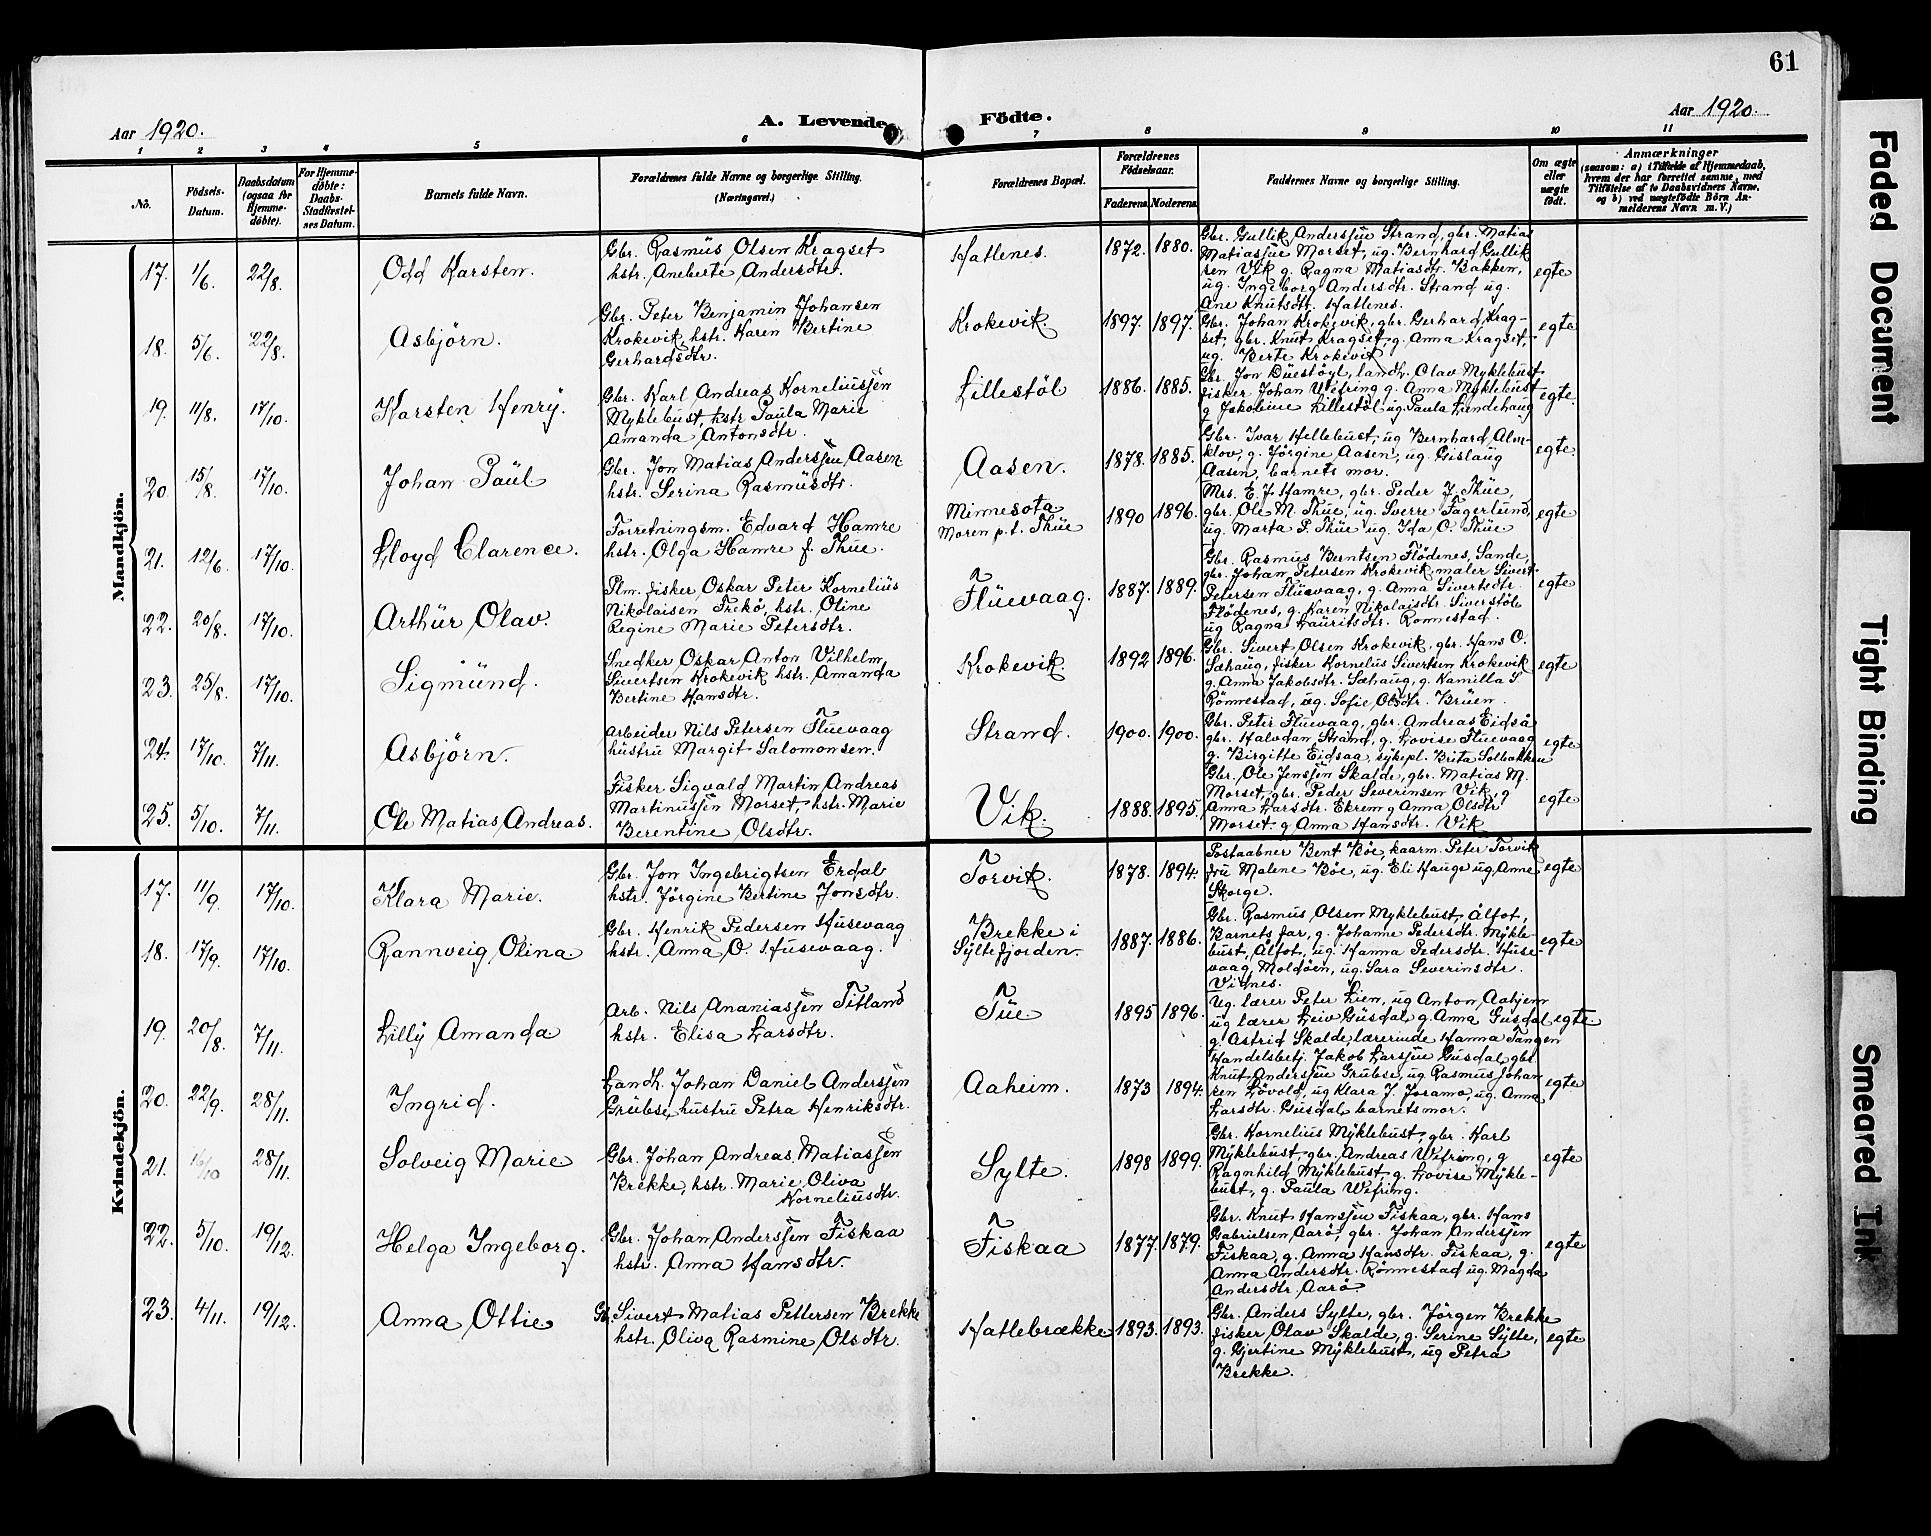 61
Aar 1920.
A. Levende Födte.
Aar 1920.
1 2 3 4 5 6 7 8 9 10 11
No.
Födsels-Datum.
Daabsdatum (ogsaa for Hjemmedöbte).
For Hjemmedöbte: Daabs-Stadfæstelses Datum.
Barnets fulde Navn.
Forældrenes fulde Navne og borgerlige Stilling. (Næringsvei.)
Forældrenes Bopæl.
Forældrenes Födselsaar.
Faderens. Moderens.
Faddernes Navne og borgerlige Stilling.
Om ægte eller uægte födt.
Anmærkninger
(saasom: a) i Tilfælde af Hjemmedaab, hvem der har forrettet samme, med Tilföielse af to Daabsvidners Navne, og b) ved uægtefödte Börn Anmelderens Navn m. V.)
Mandkjön.
17. 1/6. 22/8. Odd Karsten.
Gbr. Rasmus Olsen Kragset
hstr. Aneberte Andersdtr.
Hatlenes. 1872. 1880.
Gbr. Gullik Anderssøn Strand, gbr. Matias
Matiassøn Morset, ug. Bernhard Gullik
sen Vik g. Ragna Matiasdtr. Bakken,
ug. Ingeborg Andersdtr. Strand ug.
Ane Knutsdtr. Hatlenes.
egte
18. 5/6. 22/8. Asbjörn.
Gbr. Peter Benjamin Johansen
Krokevik, hstr. Karen Bertine
Gerhardsdtr.
Krokevik. 1897. 1897.
Gbr. Johan Krokevik, gbr. Gerhard Krag-
set, gbr. Knut Kragset, g. Anna Kragset,
ug. Berte Krokevik
egte
19. 11/8. 17/10. Karsten Henry.
Gbr. Karl Andreas Korneliussen
Myklebust, hstr. Paula Marie
Amanda Antonsdtr.
Lillestöl 1886. 1885.
Gbr. Jon Duestöyl, landh. Olav Myklebust
fisker Johan Wefring g. Anna Myklebust
g Jakobine Lillestöl ug. Paula Lundehaug
egte.
20. 15/8. 17/10. Johan Paul
Gbr. Jon Matias Anderssen Aasen
hstr. Serina Rasmusdtr.
Aasen. 1878. 1885.
Gbr. Ivar Hellebust, ug Bernhard Alm-
klov, g. Jörgine Aasen, ug. Gislaug
Aasen, barnets mor.
egte
21. 12/6. 17/10. Lloyd Clarence.
Forretningsm. Edvard Hamre
hstr. Olga Hamre f. Thue.
Minnesota
Moren p.t. Thue
1890 1896.
Mrs. E. J. Hamre, gbr. Peder J. Thue,
gbr. Ole M. Thue, ug. Sverre Fagerlund,
ug. Marta P. Thue ug. Ida O. Thue
egte
22. 20/8. 17/10. Arthur Olav.
Plm. fisker Oskar Peter Kornelius
Nikolaisen Frekö, hstr. Oline
Regine Marie Petersdtr.
Fluevaag. 1887. 1889.
Gbr. Rasmus Berntsen Flödenes, Sande,
gbr. Johan Petersen Krokevik, maler Sivert
Petersen Fluevaag, g. Anna Sivertsdtr.
Flödenes, g. Karen Nikolaisdtr. Siverstöl
ug Ragna Lauritsdtr. Rönnestad.
egte
23. 25/8. 17/10. Sigmund.
Snedker Oskar Anton Vilhelm
Sivertsen Krokevik hstr. Amanda
Bertine Hansdtr.
Krokevik. 1892 1896.
Gbr. Sivert Olsen Krokevik, gbr. Hans O.
Sæhaug, fisker Kornelus Sivertsen Krokevik
g. Anna Jakobsdtr. Sæhaug, g. Kamilla S
Rönnestad, ug. Sofie Olsdtr. Bruen.
egte
24. 17/10. 7/11. Asbjörn.
Arbeider Nils Petersen Fluevaag
hustru Margit Salomonsen.
Strand. 1900. 1900.
Gbr. Peter Fluevaag, gbr. Andreas Eidså
gbr. Halvdan Strand, g. Lovise Fluevaag
g. Birgitte Eidsaa, sykepl. Brita Solbakken
egte
25. 5/10. 7/11. Ole Matias Andreas.
Fisker Sigvald Martin Andreas
Martinussen Morset, hstr. Marie
Berentine Olsdtr.
Vik. 1888. 1895.
Gbr. Ole Jenssen Skalde, gbr. Matias M.
Morset, gbr. Peder Severinsen Vik, g
Anna Larsdtr. Ekrem g Anna Olsdtr.
Morset. g Anna Hansdtr. Vik
egte
Kvindekjön.
17. 11/9. 17/10. Klara Marie.
Gbr. Jon Ingebrigtsen Erdal
hstr. Jörgine Bertine Jonsdtr.
Torvik. 1878. 1894.
Postaabner Bent Böe, kaarm. Peter Torvik
fru Malene Böe, ug. Eli Hauge ug, Anne
Skorge.
egte
18. 17/9. 17/10. Rannveig Olina.
Gbr. Henrik Pedersen Husevaag
hstr. Anna O. Husevaag.
Brekke i
Syltefjorden.
1887. 1886.
Gbr. Rasmus Olsen Myklebust, Ålfot,
Barnets far, g. Johanne Pedersdtr. Mykle-
bust, Ålfot, ug. Hanna Pedersdtr. Huse-
vaag, Moldöen, ug. Sara Severinsdtr.
Vidnes.
egte
19. 20/8. 7/11. Lilly Amanda.
Arb. Nils Ananiassen Titland
hstr. Elisa Larsdtr.
Tue 1895 1896.
Ug. lærer Peter Lien, ug Anton Aabjem
ug lærer Leiv Gusdal g. Anna Gusdal
g. Astrid Skalde, lærerinde Hanna Tangen
egte.
20. 22/9. 28/11. Ingrid.
Landh. Johan Daniel Anderssen
Grubse, hustru Petra Henriksdtr.
Aaheim. 1873 1894.
Handelsbetj. Jakob Larssøn Gusdal, gbr.
Knut Anderssøn Grubse, ug Rasmus Johan
sen Lövold, ug Klara J. Joramo, ug. Anna
Larsdtr. Gusdal, barnets mor.
egte
21. 16/10 28/11. Solveig Marie
Gbr. Johan Andreas Matiassen
Brekke, hstr. Marie Oliva
Korneliusdtr.
Sylte. 1898 1899.
Gbr. Kornelius Myklebust, gbr. Karl
Myklebust, gbr. Andreas Wefring, g
Ragnhild Myklebust, g. Lovise Mykle-
bust, g. Paula Wefring.
egte
22. 5/10. 19/12. Helga Ingeborg.
Gbr. Johan Anderssen Fiskaa
hstr. Anna Hansdtr.
Fiskaa 1877. 1879.
Gbr. Knut Hanssøn Fiskaa, gbr. Hans
Gabrielsen Aarö, gbr. Johan Anderssen
Fiskaa, g. Anna Hansdtr. Fiskaa, g.
Anna Andersdtr. Rönnestad ug. Magda
Andersdtr. Aarö
egte
23. 4/11. 19/12. Anna Ottie
Gb. Sivert Matias Pettersen Brekke
hstr. Oliva Rasmine Olsdtr.
Hatlebrække 1893. 1893.
Gbr. Anders Sylte, gbr. Jörgen Brekke
fisker Olav Skalde, g. Serine Sylte,
g. Gjertine Myklebust, ug Petra
Brekke.
egte
Faded Document
Tight Binding
Smeared Ink